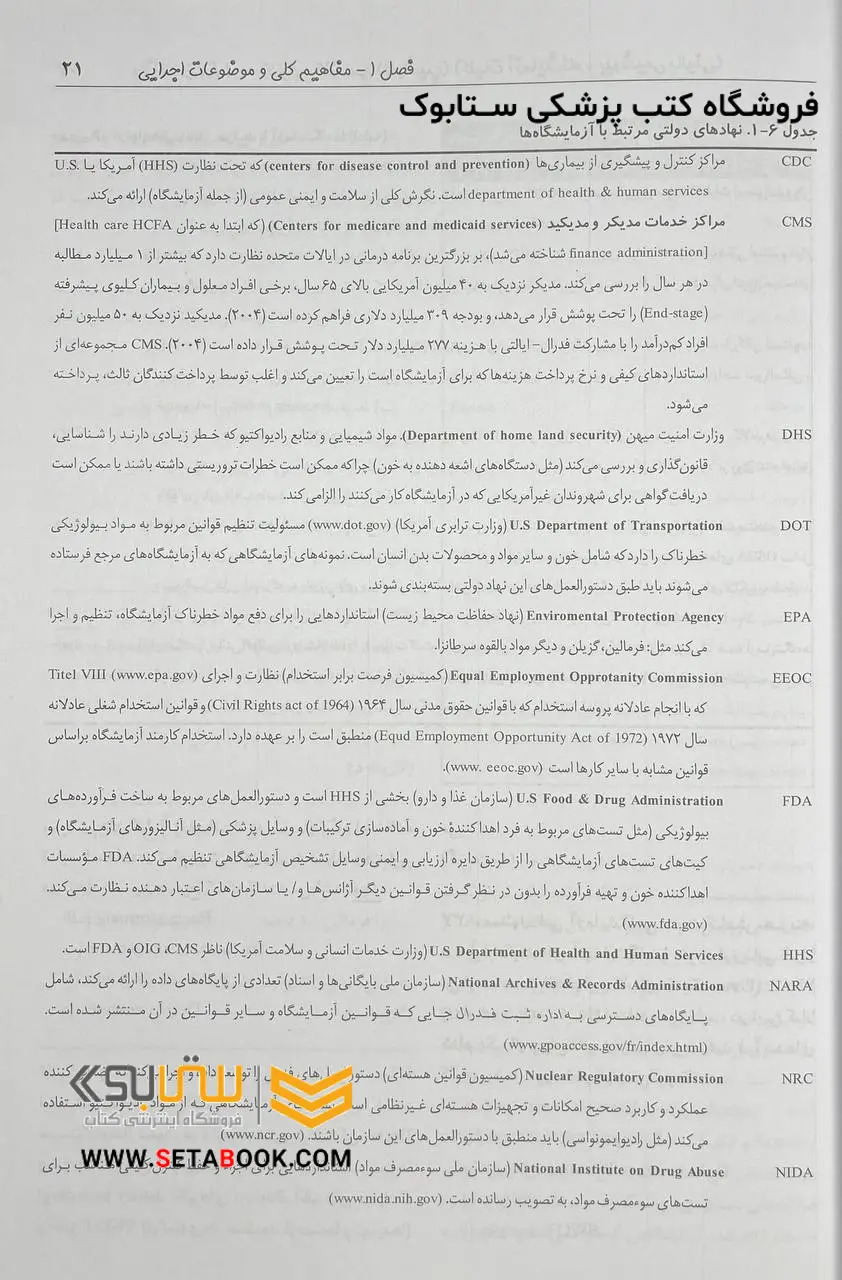 فصل ۱- مفاهیم کلی و موضوعات اجرایی ۲۱
فروشگاه کتب پزشکی ستابوک
جدول ۶-۱. نهادهای دولتی مرتبط با آزمایشگاه‌ها
CDC مراکز کنترل و پیشگیری از بیماری‌ها (centers for disease control and prevention) که تحت نظارت (HHS) آمریکا یا U.S.
department of health & human services است. نگرش کلی از سلامت و ایمنی عمومی (از جمله آزمایشگاه) ارائه می‌کند.
CMS مراکز خدمات مدیکر و مدیکید (Centers for medicare and medicaid services) (که ابتدا به عنوان Health care HCFA]
[finance administration شناخته می‌شد)، بر بزرگترین برنامه درمانی در ایالات متحده نظارت دارد که بیشتر از ۱ میلیارد مطالبه
در هر سال را بررسی می‌کند. مدیکر نزدیک به ۴۰ میلیون آمریکایی بالای ۶۵ سال، برخی افراد معلول و بیماران کلیوی پیشرفته
(End-stage) را تحت پوشش قرار می‌دهد، و بودجه ۳۰۹ میلیارد دلاری فراهم کرده است (۲۰۰۴). مدیکید نزدیک به ۵۰ میلیون نفر
افراد کم‌درآمد را با مشارکت فدرال- ایالتی با هزینه ۲۷۷ میلیارد دلار تحت پوشش قرار داده است (۲۰۰۴). CMS مجموعه‌ای از
استانداردهای کیفی و نرخ پرداخت هزینه‌ها که برای آزمایشگاه است را تعیین می‌کند و اغلب توسط پرداخت کنندگان ثالث، پرداخته
می‌شود.
DHS وزارت امنیت میهن (Department of home land security). مواد شیمیایی و منابع رادیواکتیو که خطر زیادی دارند را شناسایی،
قانون‌گذاری و بررسی می‌کند (مثل دستگاه‌های اشعه دهنده به خون) چراکه ممکن است خطرات تروریستی داشته باشند یا ممکن است
دریافت گواهی برای شهروندان غیرآمریکایی که در آزمایشگاه کار می‌کنند را الزامی کند.
DOT U.S Department of Transportation (وزارت ترابری آمریکا) (www.dot.gov) مسئولیت تنظیم قوانین مربوط به مواد بیولوژیکی
خطرناک را دارد که شامل خون و سایر مواد و محصولات بدن انسان است. نمونه‌های آزمایشگاهی که به آزمایشگاه‌های مرجع فرستاده
می‌شوند باید طبق دستورالعمل‌های این نهاد دولتی بسته‌بندی شوند.
EPA Enviromental Protection Agency (نهاد حفاظت محیط زیست) استانداردهایی را برای دفع مواد خطرناک آزمایشگاه، تنظیم و اجرا
می‌کند مثل: فرمالین، گزیلن و دیگر مواد بالقوه سرطانزا.
EEOC Equal Employment Opprotanity Commission (کمیسیون فرصت برابر استخدام) نظارت و اجرای Titel VIII (www.epa.gov)
که با انجام عادلانه پروسه استخدام که با قوانین حقوق مدنی سال ۱۹۶۴ (Civil Rights act of 1964) و قوانین استخدام شغلی عادلانه
سال ۱۹۷۲ (Equd Employment Opportunity Act of 1972) منطبق است را بر عهده دارد. استخدام کارمند آزمایشگاه براساس
قوانین مشابه با سایر کارها است (www. eeoc.gov).
FDA U.S Food & Drug Administration (سازمان غذا و دارو) بخشی از HHS است و دستورالعمل‌های مربوط به ساخت فرآورده‌های
بیولوژیکی (مثل تست‌های مربوط به فرد اهداکنندهٔ خون و آماده‌سازی ترکیبات) و وسایل پزشکی (مثل آنالیزورهای آزمایشگاه) و
کیت‌های تست‌های آزمایشگاهی را از طریق دایره ارزیابی و ایمنی وسایل تشخیص آزمایشگاهی تنظیم می‌کند. FDA مؤسسات
اهداکننده خون و تهیه فرآورده را بدون در نظر گرفتن قوانین دیگر آژانس‌ها و/ یا سازمان‌های اعتبار دهنده نظارت می‌کند.
(www.fda.gov)
HHS U.S Department of Health and Human Services (وزارت خدمات انسانی و سلامت آمریکا) ناظر OIG ،CMS و FDA است.
NARA National Archives & Records Administration (سازمان ملی بایگانی‌ها و اسناد) تعدادی از پایگاه‌های داده را ارائه می‌کند، شامل
پایگاه‌های دسترسی به اداره ثبت فدرال جایی که قوانین آزمایشگاه و سایر قوانین در آن منتشر شده است.
(www.gpoaccess.gov/fr/index.html)
NRC Nuclear Regulatory Commission (کمیسیون قوانین هسته‌ای) را توسعه داده و کننده
عملکرد و کاربرد صحیح امکانات و تجهیزات هسته‌ای غیرنظامی آزمایشگاهی که از مواد استفاده
می‌کند (مثل رادیوایمونواسی) باید منطبق با دستورالعمل‌های این سازمان باشند. (www.ncr.gov)
ستابوک
فروشگاه اینترنتی کتاب
WWW.SETABOOK.COM
NIDA National Institute on Drug Abuse (سازمان ملی سوءمصرف مواد) برای
تست‌های سوءمصرف مواد، به تصویب رسانده است. (www.nida.nih.gov)